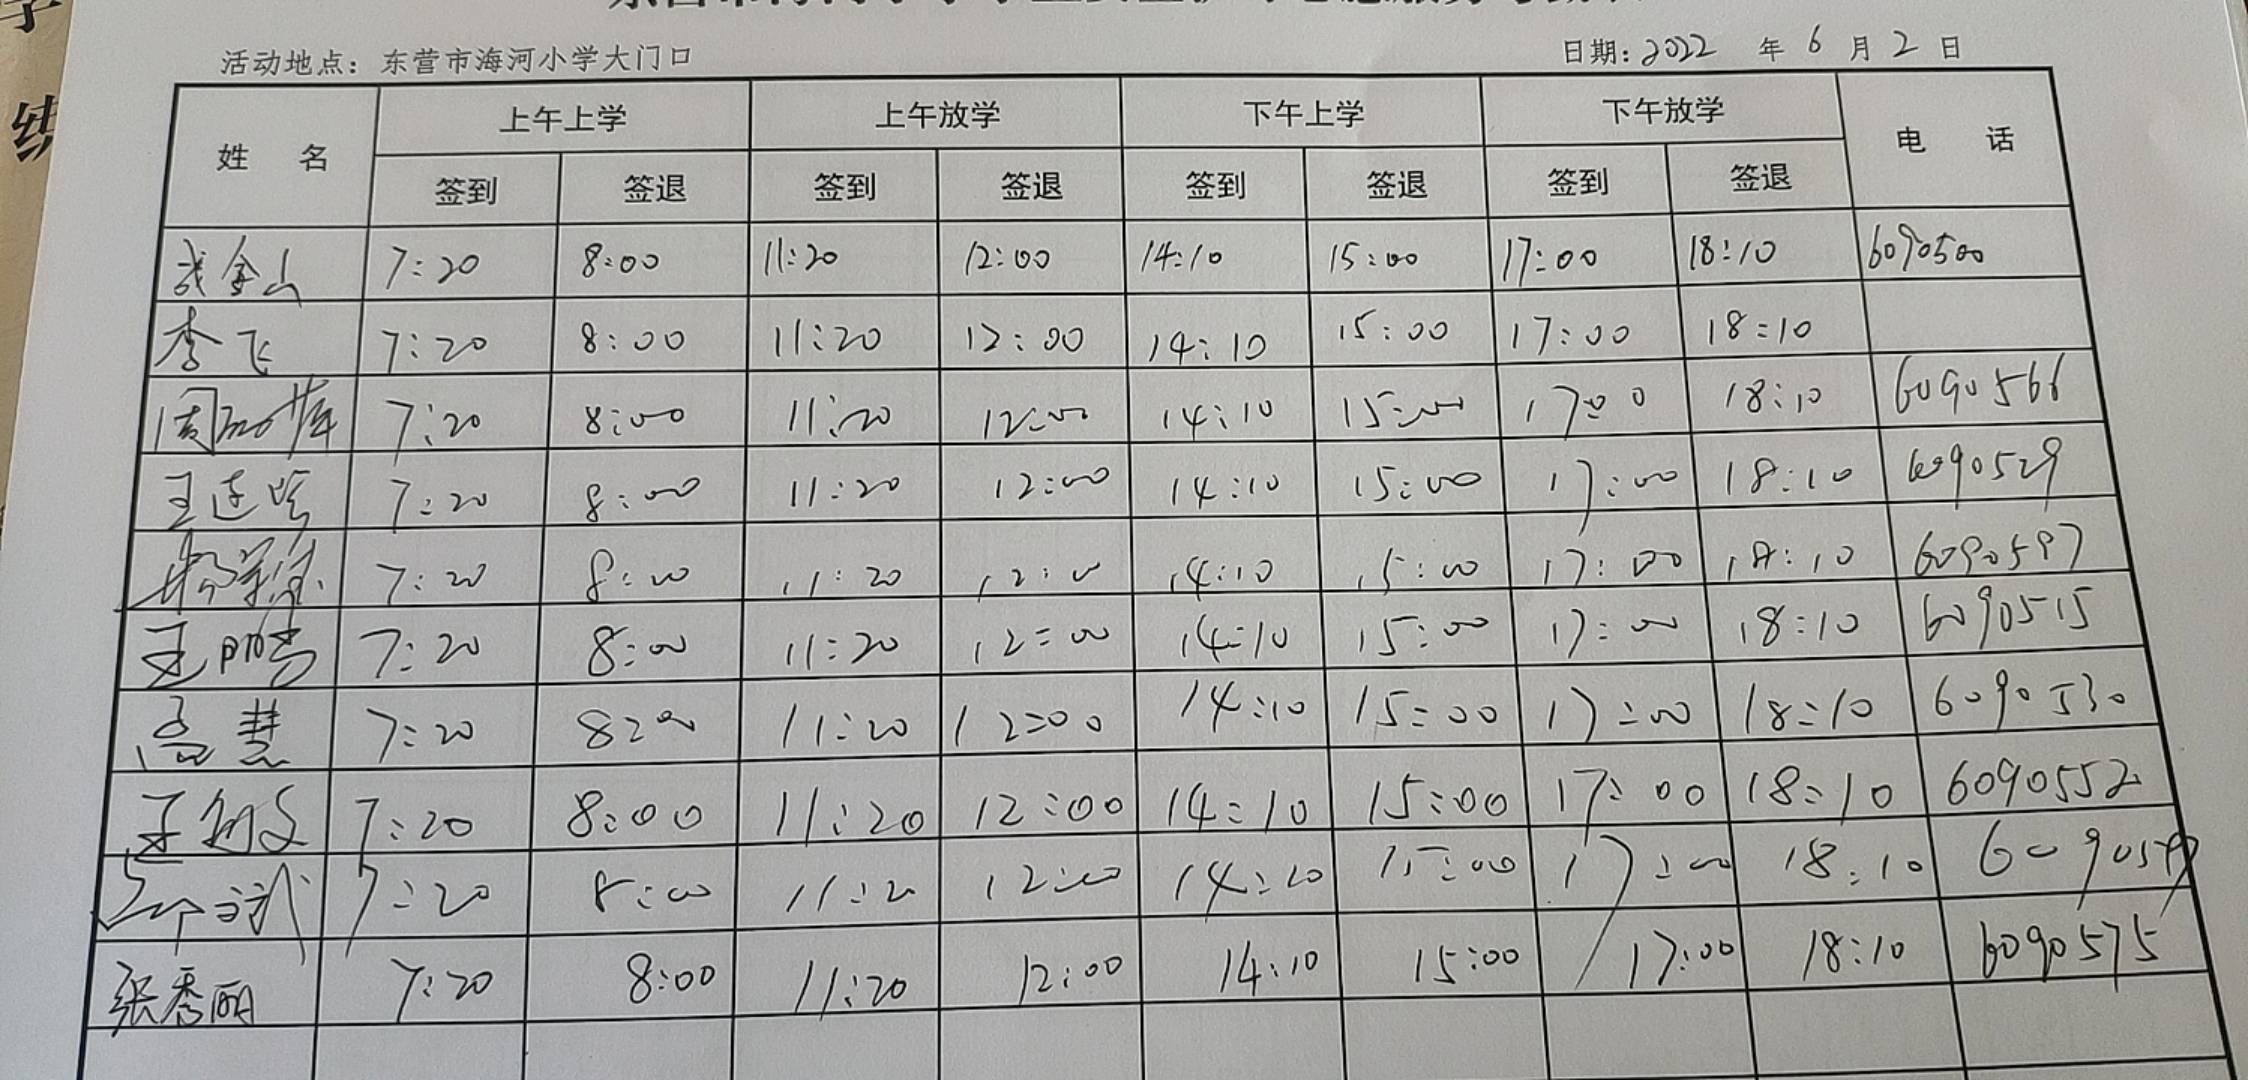 学
练
活动地点：东营市海河小学大门口 日期：2022 年 6 月 2 日
姓 名 上午上学 上午放学 下午上学 下午放学 电 话
签到 签退 签到 签退 签到 签退 签到 签退
金山 7:20 8:00 11:20 12:00 14:10 15:00 17:00 18:10 6090500
李飞 7:20 8:00 11:20 12:00 14:10 15:00 17:00 18:10
周 7:20 8:00 11:20 12:00 14:10 15:00 17:00 18:10 6090566
王连 7:20 8:00 11:20 12:00 14:10 15:00 17:00 18:10 6090529
杨 7:20 8:00 11:20 12:00 14:10 15:00 17:00 18:10 6090597
王鹏 7:20 8:00 11:20 12:00 14:10 15:00 17:00 18:10 6090515
高慧 7:20 8:00 11:20 12:00 14:10 15:00 17:00 18:10 6090530
王 7:20 8:00 11:20 12:00 14:10 15:00 17:00 18:10 6090552
7:20 8:00 11:20 12:00 14:10 15:00 17:00 18:10
张秀丽 7:20 8:00 11:20 12:00 14:10 15:00 17:00 18:10 6090575